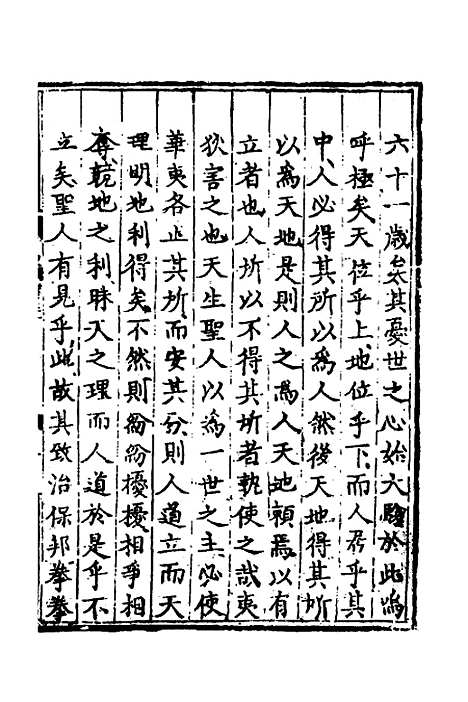 六十一歲矣其憂世之心始大驗於此嗚
呼極矣天位乎上地位乎下而人居乎其
中人必得其所以爲人然後天地得其所
以爲天地是則人之爲人天地頼焉以有
立者也人所以不得其所者孰使之哉夷
狄害之也天生聖人以爲一世之主必使
華夷各止其所而安其分則人道立而天
理明地利得矣不然則紛紛擾擾相爭相
奪競地之利昧人之理而人道於是乎不
立矣聖人有見乎此故其致治保邦拳拳